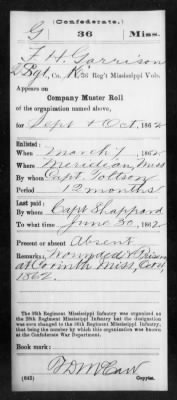 (Confederate.)
G 36 Miss.
T. H. Garrison
2 Sgt, Co. K, 36 Reg't Mississippi Vols.
Appears on
Company Muster Roll
of the organization named above,
for Sept & Oct, 1862
Enlisted:
When March 7, 1862
Where Meridian, Miss
By whom Capt.
Period 12 months
Last paid:
By whom Capt Shappard
To what time June 30, 1862
Present or absent Absent
Remarks: Wounded &
at Corinth Miss, Oct 4
1862
The 36th Regiment Mississippi Infantry was organized as
the 36th Regiment Mississippi Infantry but the designation
was changed to the Regiment Mississippi Infantry,
that being the number by which this organization was known
at the Confederate War Department.
Book mark:
(642) Copyist.